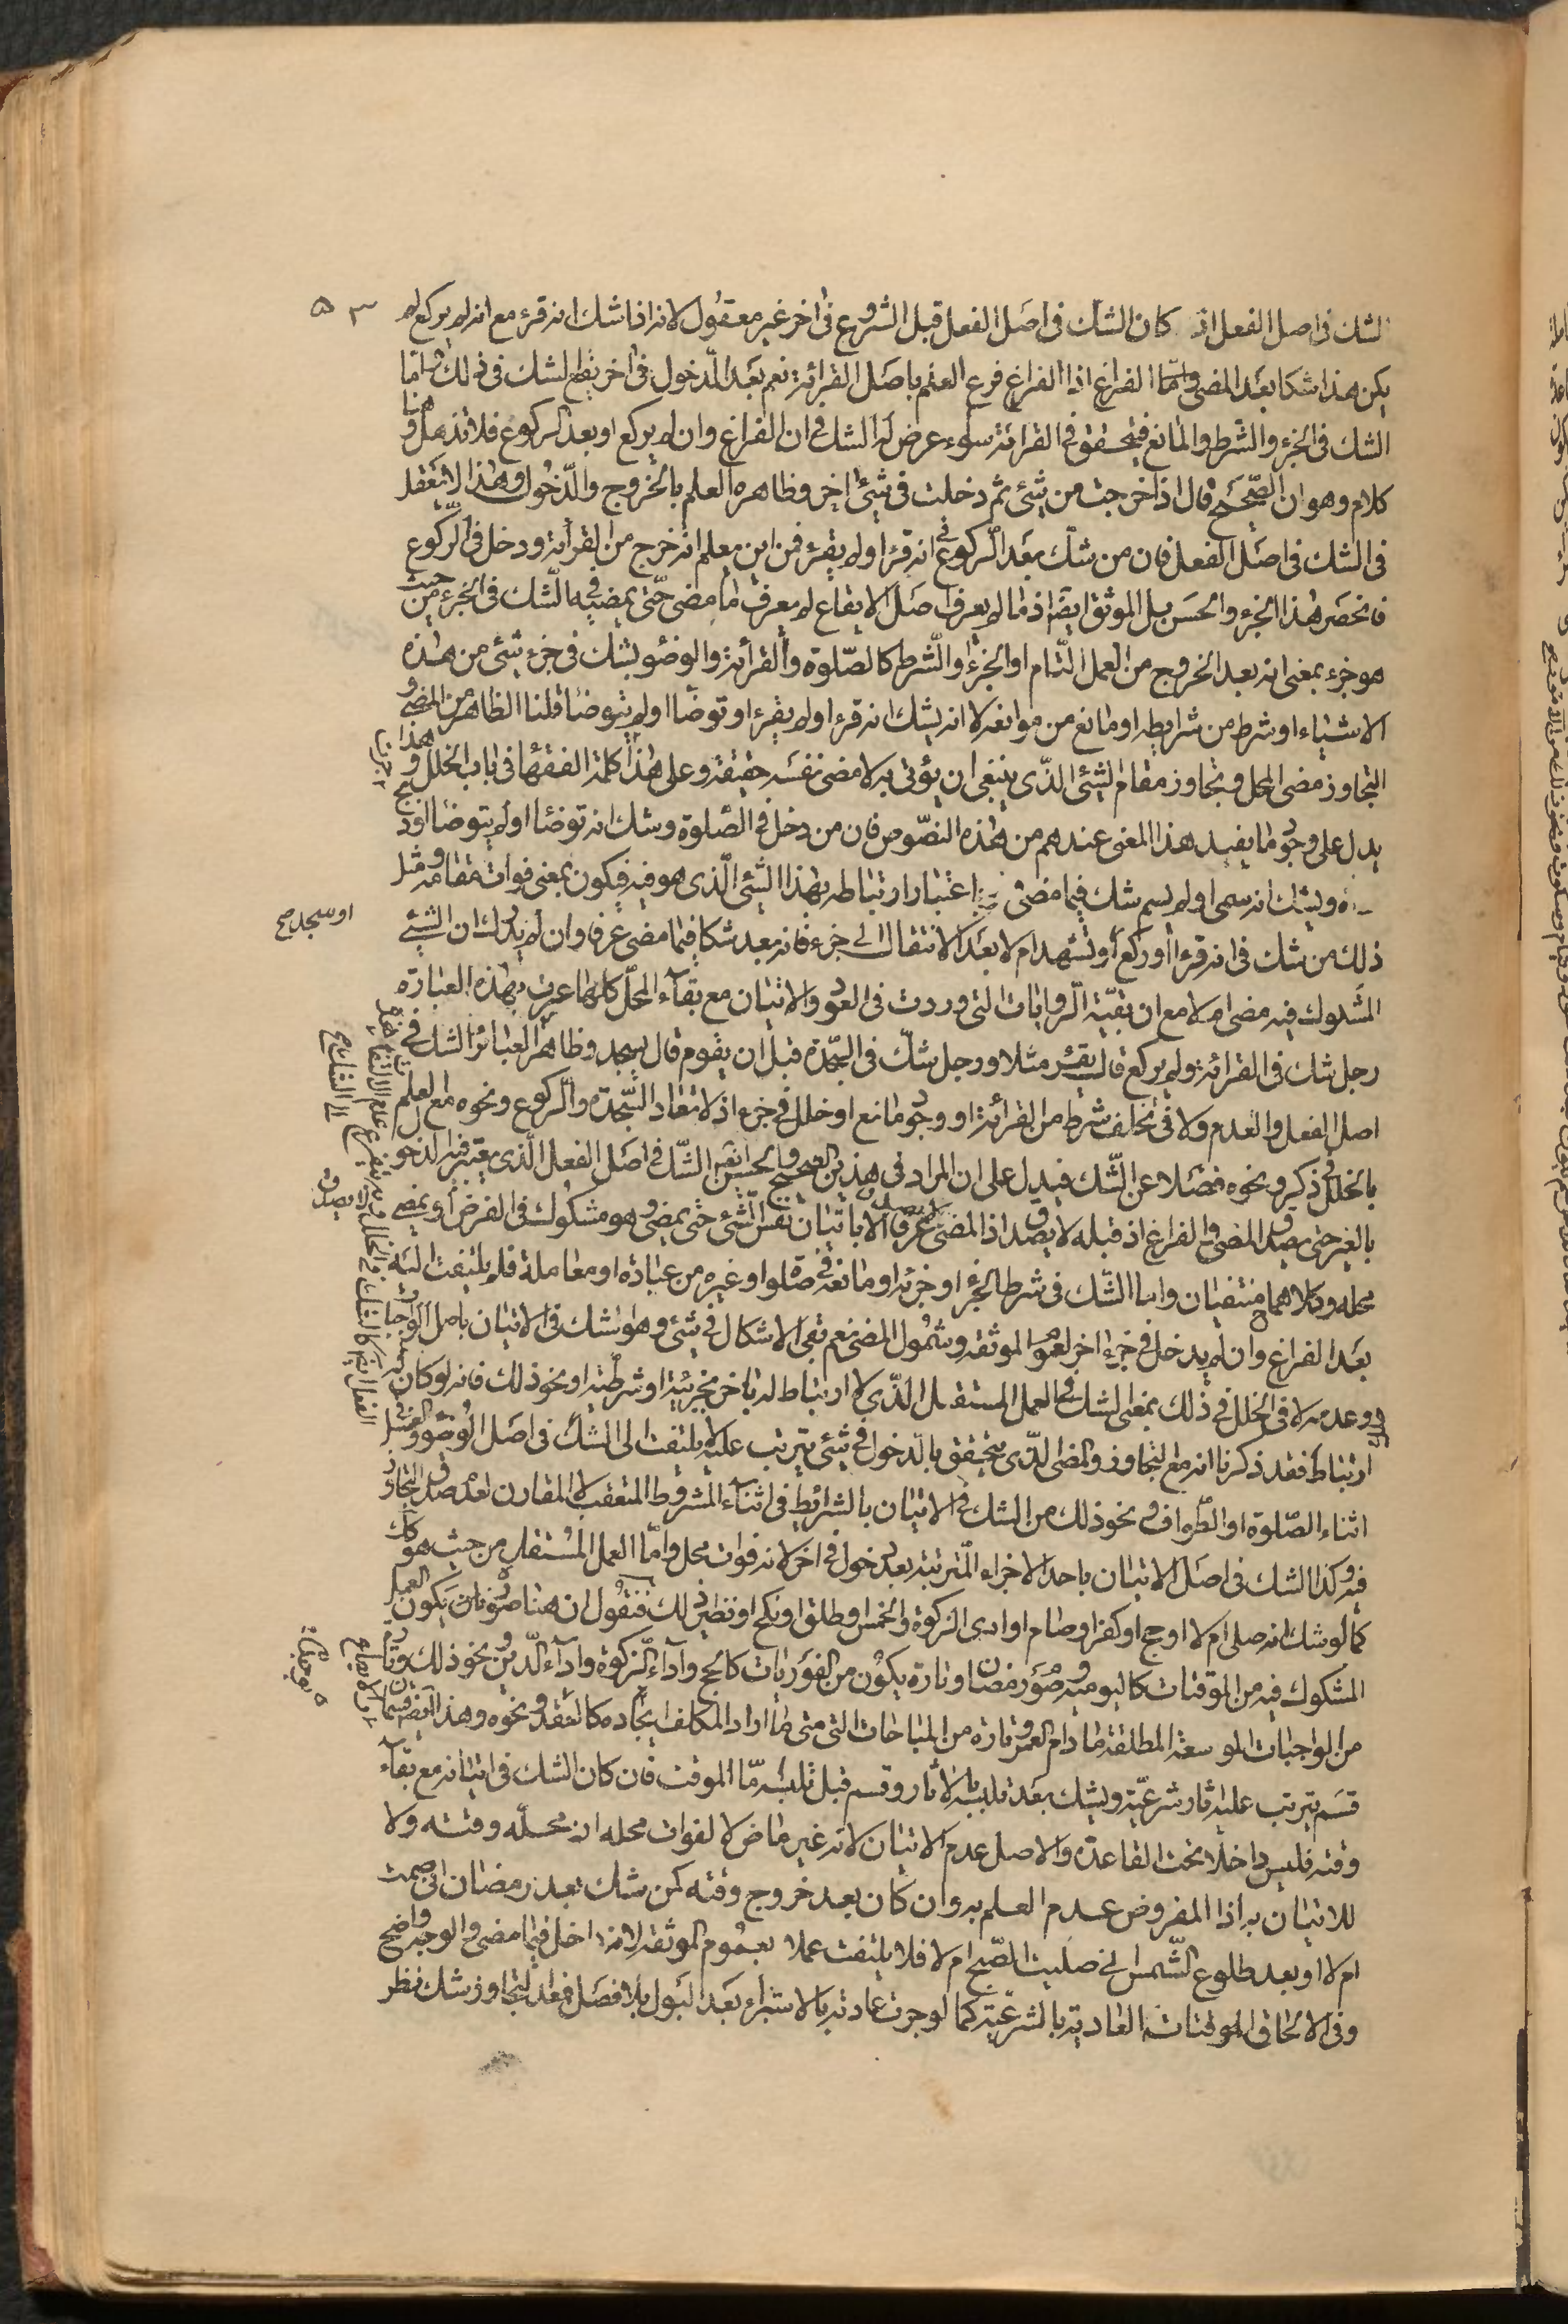 ٥٣
الشك فى اصل الفعل اذ كان الشك فى اصل الفعل قبل الشروع فى اخر غير معقول لانه اذا شك انه قرء مع انه لم يركع لم
يكن هذا شكا بعد المضى واما الفراغ اذا الفراغ فرع العلم باصل القرائة نعم بعد الدخول فى اخر يقع الشك فى ذلك واما
الشك فى الجزء والشرط والمانع فيتحقق فى القرائة سواء عرض له الشك فى ان الفراغ وان لم يركع او بعد الركوع فلا تذهل وهنا
كلام وهو ان الصحيح قال اذا خرجت من شئ ثم دخلت فى شئ اخر وظاهره العلم بالخروج والدخول وهذا لا يتعقل
فى الشك فى اصل الفعل فان من شك بعد الركوع فى انه قرء او لم يقرء فمن اين يعلم انه خرج من القرائة ودخل فى الركوع
فانحصر هذا الجزء والحسن بل الموثق ايضا اذ ما لم يعرف اصل الايقاع لم يعرف ما مضى حتى يمضيه فى الشك فى الجزء من حيث
هو جزء بمعنى انه بعد الخروج من العمل التام او الجزء او الشرط كالصلوة والقرائة والوضو يشك فى جزء شئ من هذه
الاشياء او شرط من شرايطه او مانع من موانعه لا انه يشك انه قرء او لم يقرء او توضأ او لم يتوضأ قلنا الظاهر من المضى و
التجاوز مضى المحل وتجاوز مقام الشئ الذى ينبغى ان يؤتى به لا مضى نفسه حقيقة وعلى هذا كلمة الفقهاء فى باب الخلل وهذا
يدل على وجود ما يفيد هذا المعنى عندهم من هذه النصوص فان من دخل فى الصلوة وشك انه توضأ او لم يتوضأ او ذبح
ويشك انه سمى او لم يسم شك فيما مضى باعتبار ارتباطه بهذا الشئ الذى هو فيه فيكون بمعنى فوات مقامه ومثل
ذلك من شك فى انه قرء او ركع او تشهد ام لا بعد الانتقال الى جزء فانه يعد شكا فيما مضى عرفا وان لم يدرك ان الشئ
او سجد صح
المشكوك فيه مضى ام لا مع ان بقية الروايات التى وردت فى العود والاتيان مع بقآء المحل كلها عبرت بهذه العبارة
رجل شك فى القرائة ولم يركع قال يقرء مثلا ورجل شك فى السجدة قبل ان يقوم قال يسجد وظاهر العبائر الشك فى
اصل الفعل والعدم ولا فى تخلف شرط من القرائة او وجود مانع او خلل فى جزء اذ لا تعاد السجدة والركوع ونحوه مع العلم
بالخلل فى ذكر ونحوه فضلا عن الشك فيدل على ان المراد فى هذين الصحيح والحسن ايضا الشك فى اصل الفعل الذى يعتبر فيه الدخول
بالغير حتى يصدق المضى والفراغ اذ قبله لا يصدق اذ المضى لا يصدق عرفا الا باتيان نفس الشئ حتى يمضى وهو مشكوك فى الفرض او بمضى
محله وكلاهما منتفيان واما الشك فى شرط الجزء او جزئه او مانعه فى صلوة او غيره من عبادة او معاملة فلم يلتفت اليه
بعد الفراغ وان لم يدخل فى جزء اخر لعموم الموثقة وشمول المضى نعم بقى الاشكال فى شئ وهو الشك فى الاتيان باصل الواجبات
وعدمه لا فى الخلل فى ذلك بمعنى الشك فى العمل المستقل الذى لا ارتباط له باخر بجزئية او شرطية او نحو ذلك فانه لو كان
ارتباط فقد ذكرنا انه مع التجاوز والمضى الذى يتحقق بالدخول فى شئ يترتب عليه لا يلتفت الى الشك فى اصل الوضوء والغسل
اثناء الصلوة او الطواف ونحو ذلك من الشك فى الاتيان بالشرائط فى اثنآء المشروط المتعقب لا المقارن لعدم صدق التجاوز
فيه وكذا الشك فى اصل الاتيان باحد الاجزاء المترتبة بعد دخول فى اخر لانه فوات محل واما العمل المستقل من حيث هو كك
كما لو شك انه صلى ام لا او حج او كفر او صام او ادى الزكوة والخمس او طلق او نكح او نظائر ذلك فنقول ان هنا صورتان يكون العمل
المشكوك فيه من الموقتات كاليومية وصوم رمضان او تارة يكون من الفوريات كالحج وآداء الزكوة وآداء الدين ونحو ذلك وتارة
من الواجبات الموسعة المطلقة ما دام العمر وتارة من المباحات التى متى ما اراد المكلف ايجاده كالعقود ونحوه وهذا ايضا قسمان
قسم يترتب عليه آثار شرعية ويشك بعد تلبسه بالآثار وقسم قبل تلبسه اما الموقت فان كان الشك فى اتيانه مع بقآء
وقته فليس داخلا تحت القاعدة والاصل عدم الاتيان لانه غير ماض لا لفوات محله اذ محله وقته ولا
للاتيان به اذا المفروض عدم العلم به وان كان بعد خروج وقته كمن شك بعد رمضان انى صمت
ام لا او بعد طلوع الشمس انى صليت الصبح ام لا فلا يلتفت عملا بعموم الموثقة لانه داخل فيما مضى والوجه واضح
وفى الالحاق الموقتات العادية بالشرعية كما لو جرت عادته بالاستبراء بعد البول بلا فصل فبعد التجاوز شك نظر